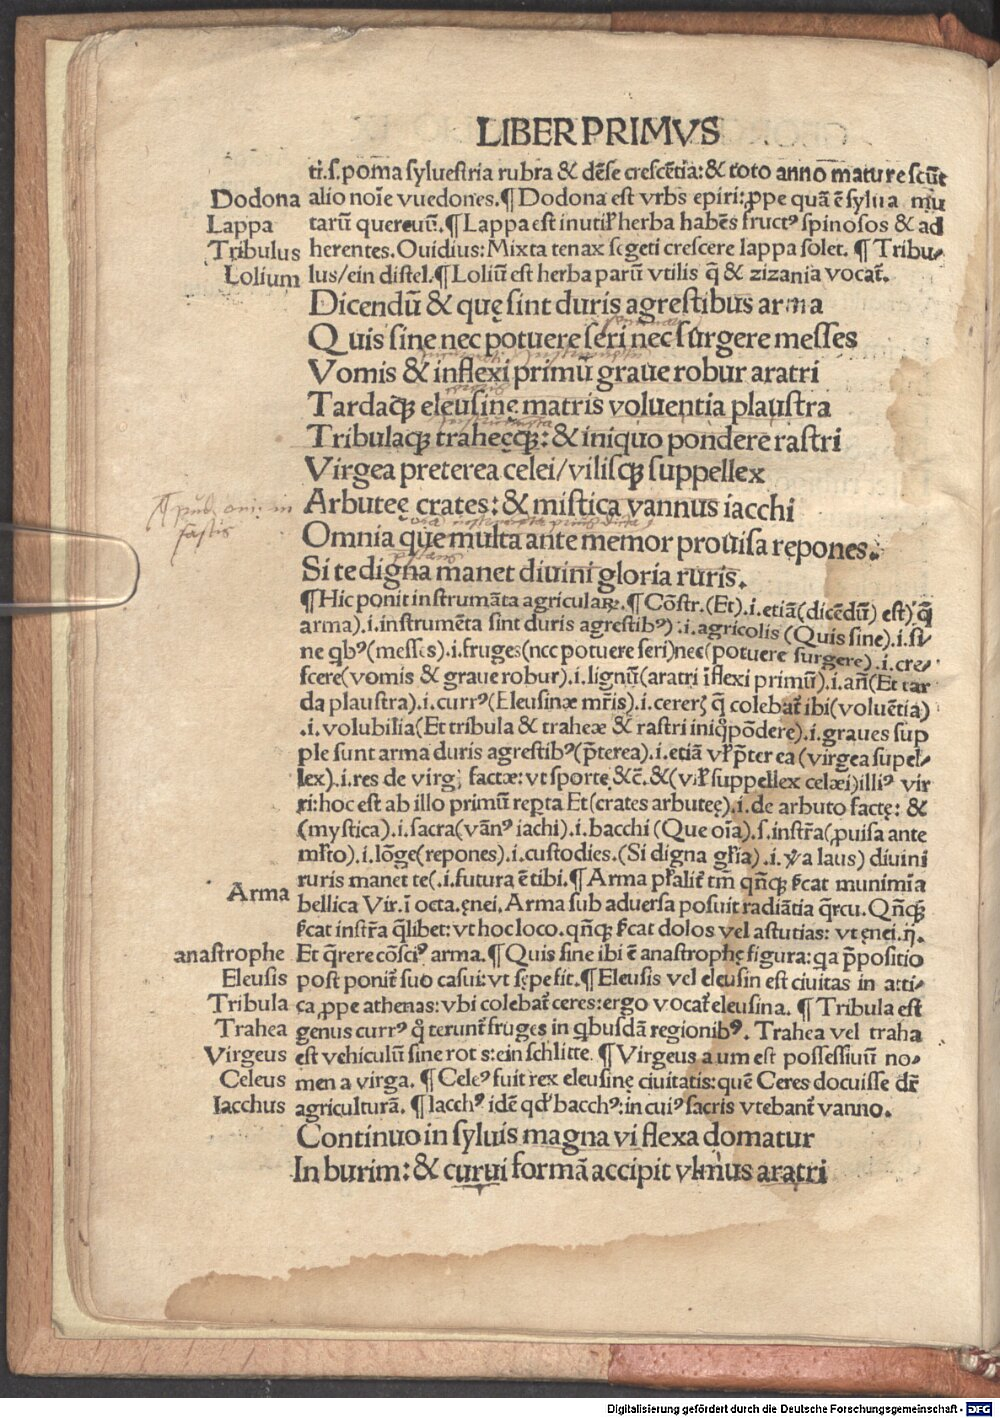 LIBER PRIMVS
tri.s.poma syluestria rubra & dēse crescētia:& toto anno maturescūt
Dodona alio noīe vuedones.¶ Dodona est vrbs epiri:ꝓpe quā ē sylua mu
Lappa tarū quercuū.¶ Lappa est inutiľ herba habēs fructꝰ spinosos & ad
Tribulus herentes. Ouidius: Mixta tenax segeti crescere lappa solet. ¶ Tribu/
Lolium lus/ein distel.¶ Loliū est herba parū vtilis q̄ & zizania vocat̄.
Dicendū & quę sint duris agrestibus arma
Quis sine nec potuere seri nec surgere messes
Vomis & inflexi primū graue robur aratri
Tardaqꝫ eleusinę matris voluentia plaustra
Tribulaqꝫ trahęęqꝫ: & iniquo pondere rastri
Virgea preterea celei/vilisqꝫ suppellex
Arbuteę crates: & mistica vannus iacchi
Omnia que multa ante memor prouisa repones.
fastis
Si te digna manet diuini gloria ruris.
¶ Hic ponit instrumāta agriculaꝝ.¶ Cōstr.(Et).i.etiā(dicēdū) est) q̄
arma).i.instrumēta sint duris agrestibꝰ).i.agricolis (Quis sine).i.si/
ne qbꝰ(messes).i.fruges(nec potuere seri)nec(potuere surgere).i.cre/
scere(vomis & graue robur).i.lignū(aratri īflexi primū).i.añ(Et tar
da plaustra).i.currꝰ(Eleusinæ mr̄is).i.cereꝝ q̄ colebat̄ ibi(voluētia)
.i.volubilia(Et tribula & traheæ & rastri iniq̊ pōdere).i.graues sup
ple sunt arma duris agrestibꝰ(p̄terea).i.etiā vľ p̄ter ea (virgea supel/
lex).i.res de virgꝭ factæ: vt sportę &c̄. &(viľ suppellex celæi)illiꝰ vir
ri:hoc est ab illo primū reꝑta Et(crates arbuteę).i.de arbuto factę: &
(mystica).i.sacra(vānꝰ iachi).i.bacchi (Que oīa).s.instr̄a(ꝓuisa ante
mľto).i.lōge(repones).i.custodies.(Si digna gľia).i.ꝟa laus) diuini
Arma ruris manet te(.i.futura ē tibi.¶ Arma pľaliť tm̄ qñqꝫ ẜcat munimīa
bellica Vir.ī octa.ęnei. Arma sub aduersa posuit radiātia q̄rcu. Qñqꝫ
ẜcat instr̄a q̄libet: vt hoc loco. qñqꝫ ẜcat dolos vel astutias: vt ęnei.ij.
anastrophe Et q̄rere cōsciꝰ arma.¶ Quis sine ibi ē anastrophę figura: qa p̄positio
Eleusis post ponit̄ suo casui: vt sępe fit.¶ Eleusis vel eleusin est ciuitas in atti/
Tribula ca ꝓpe athenas: vbi colebat̄ ceres: ergo vocat̄ eleusina. ¶ Tribula est
Trahea genus currꝰ q̊ terunt̄ fruges in qbusdā regionibꝰ. Trahea vel traha
Virgeus est vehiculū sine rotis:ein schlitte. ¶ Virgeus a um est possessiuū no/
Celeus men a virga. ¶ Celeꝰ fuit rex eleusinę ciuitatis: quē Ceres docuisse dr̄
Iacchus agriculturā. ¶ Iacchꝰ idē qđ bacchꝰ: in cuiꝰ sacris vtebant̄ vanno.
Continuo in syluis magna vi flexa domatur
In burim: & curui formā accipit vlmus aratri
Digitalisierung gefördert durch die Deutsche Forschungsgemeinschaft - DFG